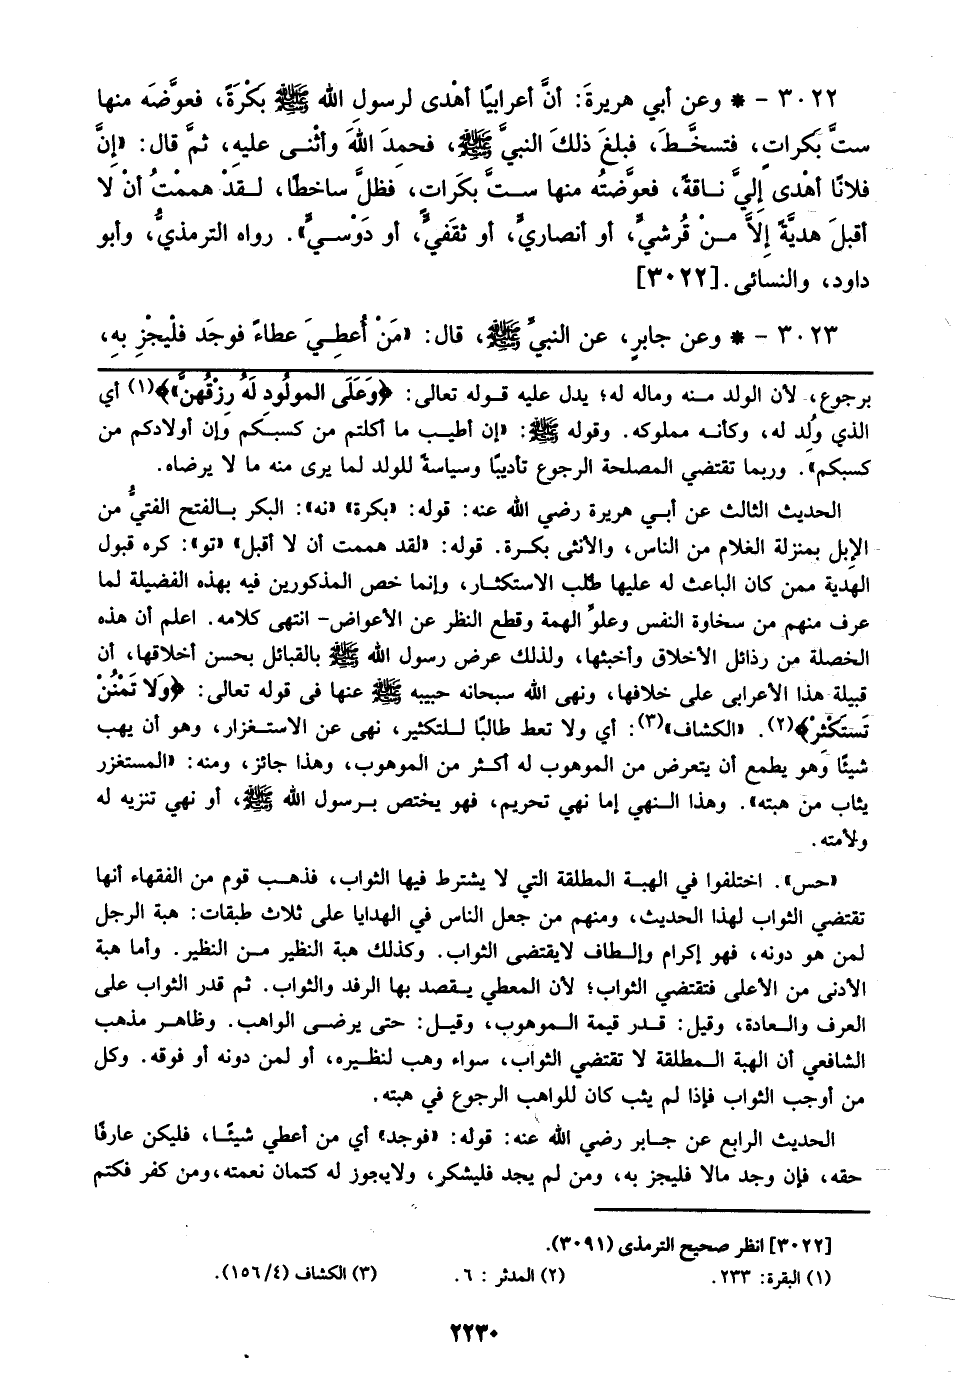 ٣٠٢٢ - * وعن أبي هريرةَ: أنَّ أعرابيًا أهْدى لرسولِ الله ﷺ بَكْرَةً، فعوَّضَه منها
ستَّ بَكَراتٍ، فتسخَّطَ، فبلغَ ذلكَ النبيَّ ﷺ، فحمِدَ اللهَ وأثْنى عليهِ، ثمَّ قال: «إنَّ
فلانًا أهْدى إليَّ ناقةً، فعوَّضتُه منها ستَّ بكَرات، فظلَّ ساخطًا، لقدْ هممْتُ أنْ لا
أقبلَ هديَّةً إلاَّ منْ قُرشيٍّ، أو أنصاريٍّ، أو ثقَفيٍّ، أو دَوْسيٍّ». رواه الترمذيُّ، وأبو
داود، والنسائى.[٣٠٢٢]
٣٠٢٣ - * وعن جابرٍ، عن النبيِّ ﷺ، قال: «مَنْ أُعطِيَ عطاءً فوجَد فلْيجْزِ بهِ،
برجوع، لأن الولد منه وماله له؛ يدل عليه قوله تعالى: ﴿وَعَلَى المولُودِ لَهُ رِزْقُهنَّ﴾(١) أي
الذي وُلِد له، وكأنه مملوكه. وقوله ﷺ: «إن أطيب ما أكلتم من كسبكم وإن أولادكم من
كسبكم». وربما تقتضي المصلحة الرجوع تأديبًا وسياسةً للولد لما يرى منه ما لا يرضاه.
الحديث الثالث عن أبي هريرة رضي الله عنه: قوله: «بكرة» «نه»: البكر بالفتح الفتيُّ من
الإبل بمنزلة الغلام من الناس، والأنثى بكرة. قوله: «لقد هممت أن لا أقبل» «تو»: كره قبول
الهدية ممن كان الباعث له عليها طلب الاستكثار، وإنما خص المذكورين فيه بهذه الفضيلة لما
عرف منهم من سخاوة النفس وعلوِّ الهمة وقطع النظر عن الأعواض- انتهى كلامه. اعلم أن هذه
الخصلة من رذائل الأخلاق وأخبثها، ولذلك عرض رسول الله ﷺ بالقبائل بحسن أخلاقها، أن
قبيلة هذا الأعرابى على خلافها، ونهى الله سبحانه حبيبه ﷺ عنها فى قوله تعالى: ﴿وَلا تَمْنُنْ
تَستَكْثرْ﴾(٢). «الكشاف»(٣): أي ولا تعط طالبًا للتكثير، نهى عن الاستغزار، وهو أن يهب
شيئًا وهو يطمع أن يتعرض من الموهوب له أكثر من الموهوب، وهذا جائز، ومنه: «المستغزر
يثاب من هبته». وهذا النهي إما نهي تحريم، فهو يختص برسول الله ﷺ، أو نهي تنزيه له
ولأمته.
«حس». اختلفوا في الهبة المطلقة التي لا يشترط فيها الثواب، فذهب قوم من الفقهاء أنها
تقتضي الثواب لهذا الحديث، ومنهم من جعل الناس في الهدايا على ثلاث طبقات: هبة الرجل
لمن هو دونه، فهو إكرام وإلطاف لايقتضى الثواب. وكذلك هبة النظير من النظير. وأما هبة
الأدنى من الأعلى فتقتضي الثواب؛ لأن المعطي يقصد بها الرفد والثواب. ثم قدر الثواب على
العرف والعادة، وقيل: قدر قيمة الموهوب، وقيل: حتى يرضى الواهب. وظاهر مذهب
الشافعي أن الهبة المطلقة لا تقتضي الثواب، سواء وهب لنظيره، أو لمن دونه أو فوقه. وكل
من أوجب الثواب فإذا لم يثب كان للواهب الرجوع في هبته.
الحديث الرابع عن جابر رضي الله عنه: قوله: «فوجد» أي من أعطي شيئًا، فليكن عارفًا
حقه، فإن وجد مالا فليجز به، ومن لم يجد فليشكر، ولايجوز له كتمان نعمته، ومن كفر فكتم
[٣٠٢٢] انظر صحيح الترمذى (٣٠٩١).
(١) البقرة: ٢٣٣. (٢) المدثر : ٦. (٣) الكشاف (٤/ ١٥٦).
٢٢٣٠